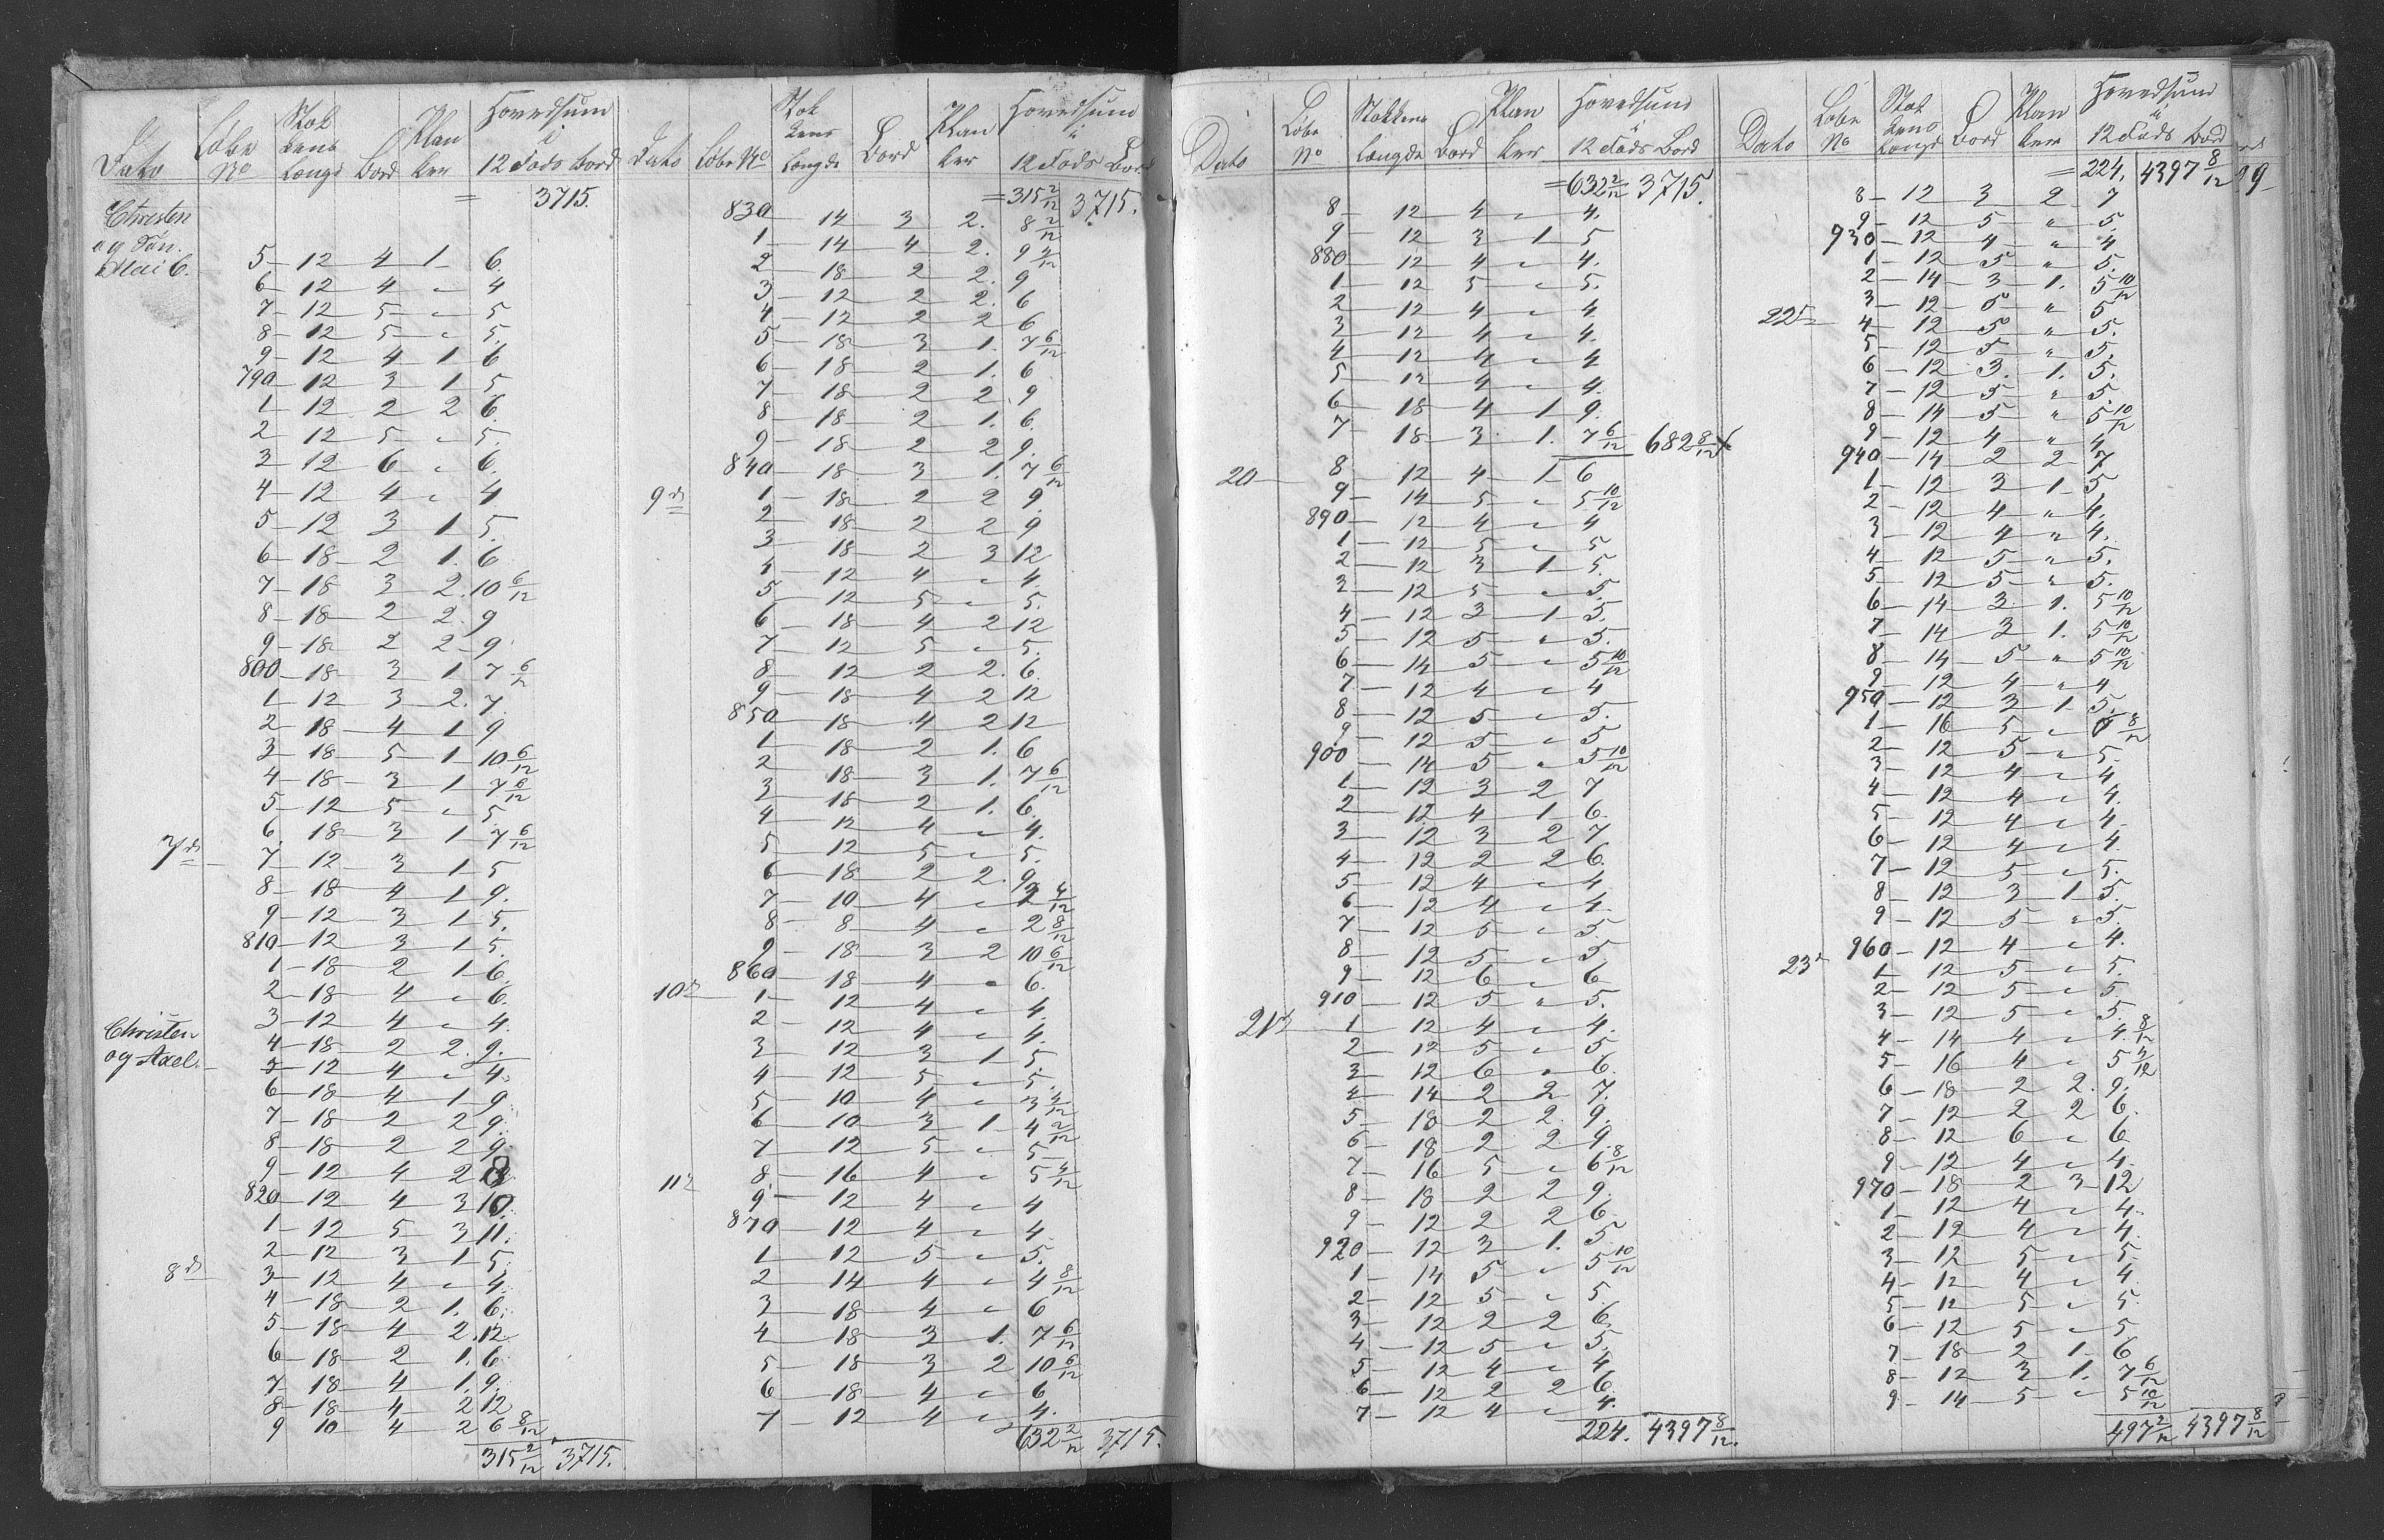 Dato Løbe No Stok kens Længd Bord Plan ker Hovedsum á 12 Fods Bord
= 3715.
Christen
og Søn.
Mai 6. 5 – 12 4 1 6.
6 – 12 4 " 4
7 – 12 5 " 5
8 – 12 5 " 5.
9 – 12 4 1 6
790 – 12 3 1 5
1 – 12 2 2 6.
2 12 5 " 5.
3 12 6 " 6.
4 – 12 4 " 4
5 – 12 3 1 5.
6 – 18 – 2 1. 6
7 – 18 3 2. 10 6/12
8 – 18 – 2 2. 9
9 – 18 2 2 – 9.
800 – 18 3 1 7 6/12
1 – 12 3 2. 7.
2 – 18 – 4 1 9
3 – 18 – 5 – 1 10 6/12
4 – 18 – 3 1 7 6/12
5 – 12 5 " 5.
6. 18 – 3 1 7 6/12
7d – 7 – 12 3 1 5
8 – 18 4 1 9.
9 – 12 3 1 5.
810 – 12 3 1 5.
1 – 18 2 1 6.
2 – 18 4 " 6.
3 – 12 4 " 4.
Christen
og Axel. 4 – 18 2 2. 9.
5 – 12 4 " 4.
6 – 18 4 1 9
7 – 18 2 2 9.
8 – 18 2 2 9.
9 – 12 4 2 8
820 – 12 4 3 10.
1 – 12 5 3 11.
2 – 12 3 1 5.
8d 3 – 12 4 " 4.
4 – 18 2 1. 6.
5 – 18 4 2. 12
6 – 18 2 1. 6.
7 – 18 4 1. 9.
8 – 18 4 2 12
9 10 4 2 6 8/12
315 2/12 3715.
Dato Løbe No Stok kens Længde Bord Plan ker Hovedsum á 12 Fods Bord
= 315 2/12 3715.
830 14 3 2. 8 2/12
1 – 14 4 2. 9 4/12
2 – 18 2 2. 9
3 – 12 2 2. 6
4 – 12 2 2 6
5 – 18 3 1. 7 6/12
6 – 18 2 1. 6
7 – 18 2 2 9
8 – 18 2 1. 6.
9 – 18 2 2 9.
840 – 18 3 1. 7 6/12
9d 1 – 18 2 2 9.
2 – 18 2 2 9
3 – 18 2 3 12
4 – 12 4 " 4.
5 – 12 5 " 5.
6 – 18 4 2 12
7 – 12 5 " 5.
8 – 12 2 2. 6.
9 – 18 4 2 12
850 – 18 4 2 12
1 – 18 2 1. 6
2 – 18 3 1. 7 6/12
3 – 18 2 1. 6.
4 – 12 4 " 4.
5 12 5 " 5.
6 – 18 2 2. 9.
7 – 10 4 " 3 4/12
8 – 8 4 " 2 8/12
9 – 18 3 2 10 6/12
860 – 18 4 " 6.
10d 1 – 12 4 " 4.
2 – 12 4 " 4.
3 – 12 3 1 5
4 – 12 5 " 5.
5 – 10 4 " 3 4/12
6 – 10 3 1 4 2/12
7 – 12 5 " 5
11d 8 – 16 4 " 5 4/12
9 – 12 4 " 4
870 – 12 4 " 4.
1 – 12 5 " 5.
2 – 14 4 " 4 8/12
3 – 18 4 " 6
4 – 18 3 1. 7 6/12
5 – 18 3 2 10 6/12
6 – 18 4 " 6
7 – 12 4 " 4.
632 2/12 3715.
Dato Løbe No Stokkens Længde Bord Plan ker Hovedsum á 12 Fods Bord
= 632 2/12 3715.
8 – 12 4 " 4.
9 – 12 3 1 5
880 – 12 4 " 4.
1 – 12 5 " 5.
2 – 12 4 " 4
3 – 12 4 " 4.
4 – 12 4 " 4
5 – 12 4 " 4.
6 – 18 4 1 9.
7 – 18 3 1. 7 6/12 682 8/12
20 – 8 – 12 4 1 6
9 – 14 5 " 5 10/12
890 – 12 4 " 4
1 – 12 5 " 5
2 – 12 3 1 5.
3 – 12 5 " 5.
4 – 12 3 1 5.
5 – 12 5 " 5.
6 – 14 5 " 5 10/12
7 – 12 4 " 4
8 – 12 5 " 5.
9 – 12 5 " 5
900 – 14 5 " 5 10/12
1 – 12 3 2 7
2 – 12 4 1 6.
3 – 12 3 2 7
4 – 12 2 2 6.
5 – 12 4 " 4
6 – 12 4 " 4.
7 – 12 5 " 5.
8 – 12 5 " 5
9 – 12 6 " 6
910 – 12 5 " 5.
21d 1 – 12 4 " 4.
2 – 12 5 " 5
3 – 12 6 " 6.
4 – 14 2 2 7.
5 – 18 2 2. 9.
6 – 18 2 2 9.
7 – 16 5 " 6 8/12
8 – 18 2 2 9.
9 – 12 2 2 6
920 – 12 3 1. 5
1 – 14 5 " 5 10/12
2 – 12 5 " 5.
3 – 12 2 2 6.
4 – 12 5 " 5.
5 – 12 4 " 4
6 – 12 2 2 6.
7 – 12 4 " 4.
224. 4397 8/12.
Dato Løbe No Stok kens Længd Bord Plan ker Hovedsum á 12 Fods Bord
= 224. 4397 8/12
8 – 12 3 2 7
9 – 12 5 " 5.
930 – 12 4 " 4
1 – 12 5 " 5.
2 – 14 3 1. 5 10/12
3 – 12 5 " 5
22d 4 – 12 5 " 5.
5 – 12 5 " 5.
6 – 12 3. 1. 5.
7 – 12 5 " 5.
8 – 14 5 " 5 10/12
9 – 12 4 " 4
940 – 14 2 2 7
1 – 12 3 1 5
2 – 12 4 " 4.
3 – 12 4 " 4.
4 – 12 5 " 5.
5 – 12 5 " 5.
6 – 14 3 1. 5 10/12
7 – 14 3 1. 5 10/12
8 – 14 5 " 5 10/12
9 – 12 4 " 4
950 – 12 3 1 5.
1 – 16 5 " 6 8/12
2 – 12 5 " 5.
3 – 12 4 " 4
4 – 12 4 " 4.
5 – 12 4 " 4
6 – 12 4 " 4.
7 – 12 5 " 5.
8 – 12 3 1 5.
9 – 12 5 " 5.
960 – 12 4 " 4.
23d 1 – 12 5 " 5.
2 – 12 5 " 5
3 – 12 5 " 5.
4 – 14 4 " 4. 8/12
5 – 16 4 " 5 4/12
6 – 18 2 2. 9.
7 – 12 2 2 6.
8 – 12 6 " 6
9 – 12 4 " 4.
970 – 18 2 3 12
1 – 12 4 " 4.
2 – 12 4 " 4.
3 – 12 5 " 5
4 – 12 4 " 4.
5 – 12 5 " 5.
6 – 12 5 " 5
7 – 18 2 1 6
8 – 12 3 1. 7 6/12
9 – 14 5 " 5 10/12
497 2/12 4397 8/12